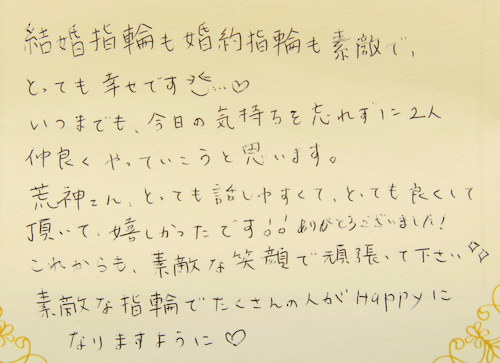 結婚指輪も婚約指輪も素敵で、
とっても幸せです…♡
いつまでも、今日の気持ちを忘れずに2人
仲良くやっていこうと思います。
荒神さん、とっても話しやすくて、とっても良くして
頂いて、嬉しかったです!!ありがとうございました!
これからも、素敵な笑顔で頑張って下さい
素敵な指輪でたくさんの人がHappyに
なりますように♡